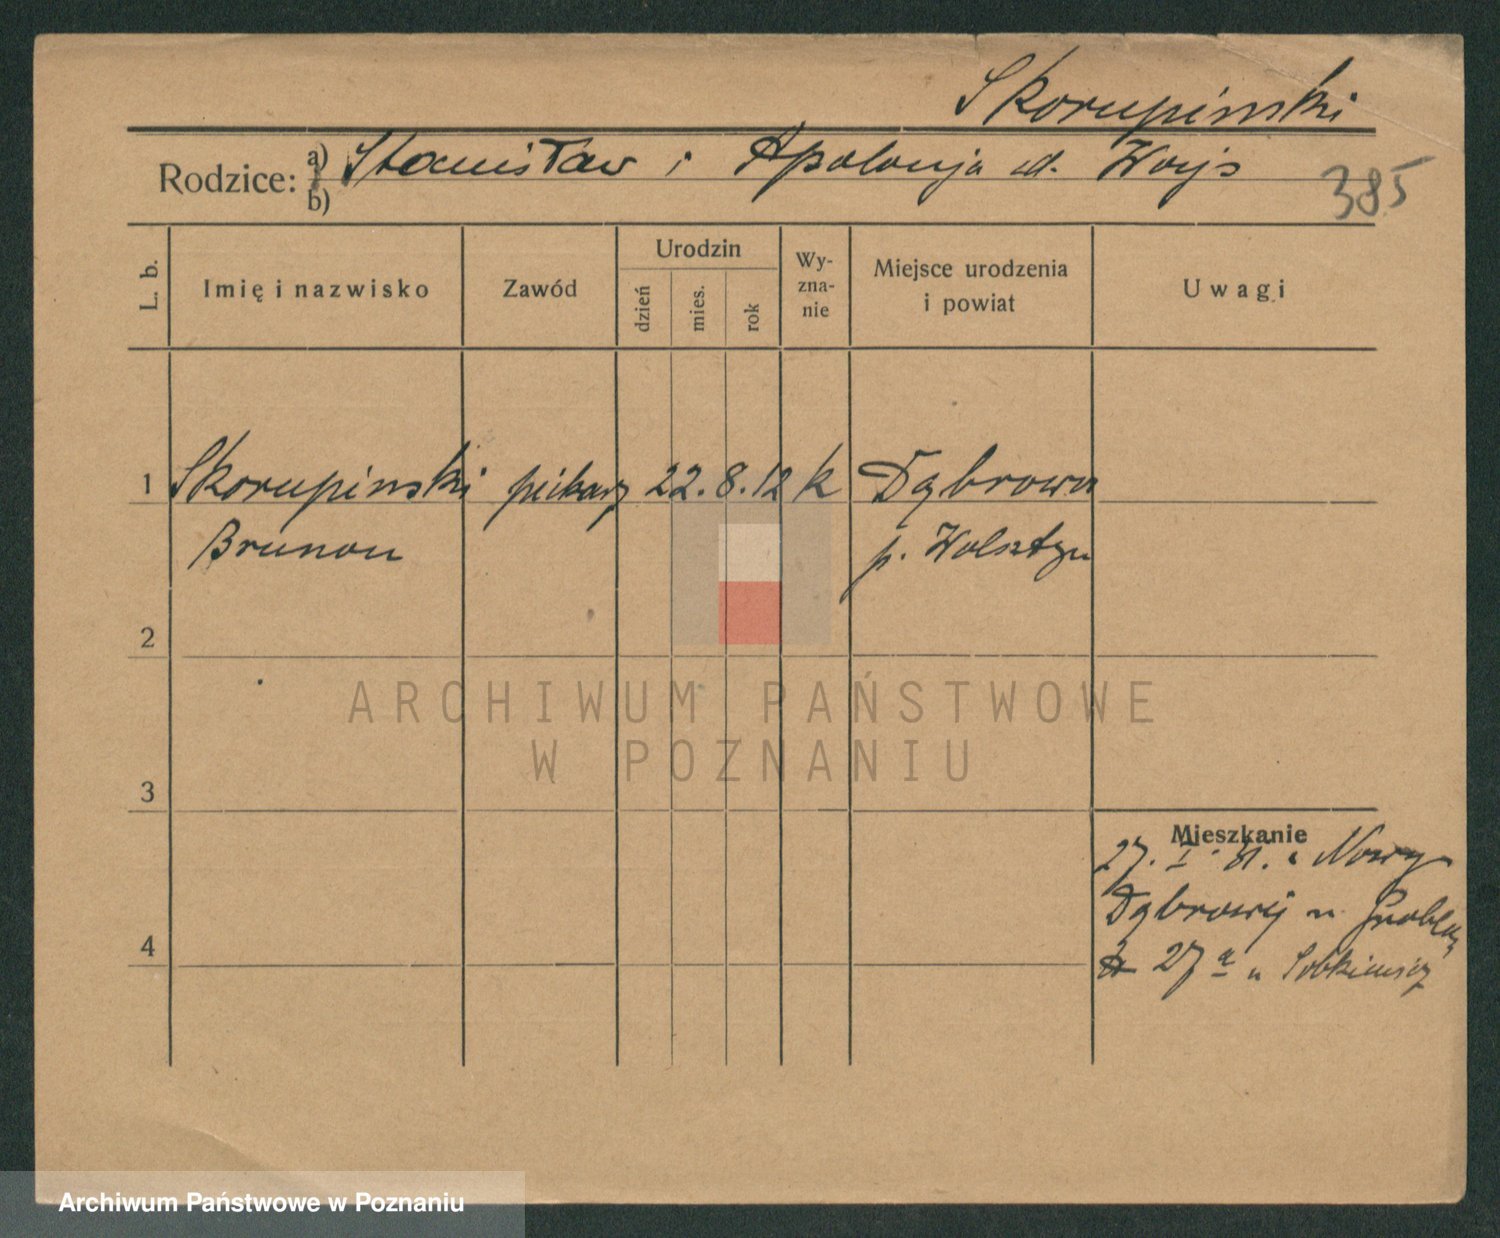 Skorupinski
Rodzice: a) b) Stanisław i Apolonja d. Woys
385
L. b.
Imię i nazwisko
Zawód
Urodzin
dzień
mies.
rok
Wy-
zna-
nie
Miejsce urodzenia
i powiat
Uwagi
1 Skorupinski piekarz 22. 8. 12 k Dąbrowa
Brunon p. Wolsztyn
2
ARCHIWUM PAŃSTWOWE
W POZNANIU
3
Mieszkanie
27. I. 31. Nowy
Dąbrowij
4
27 a u
Archiwum Państwowe w Poznaniu